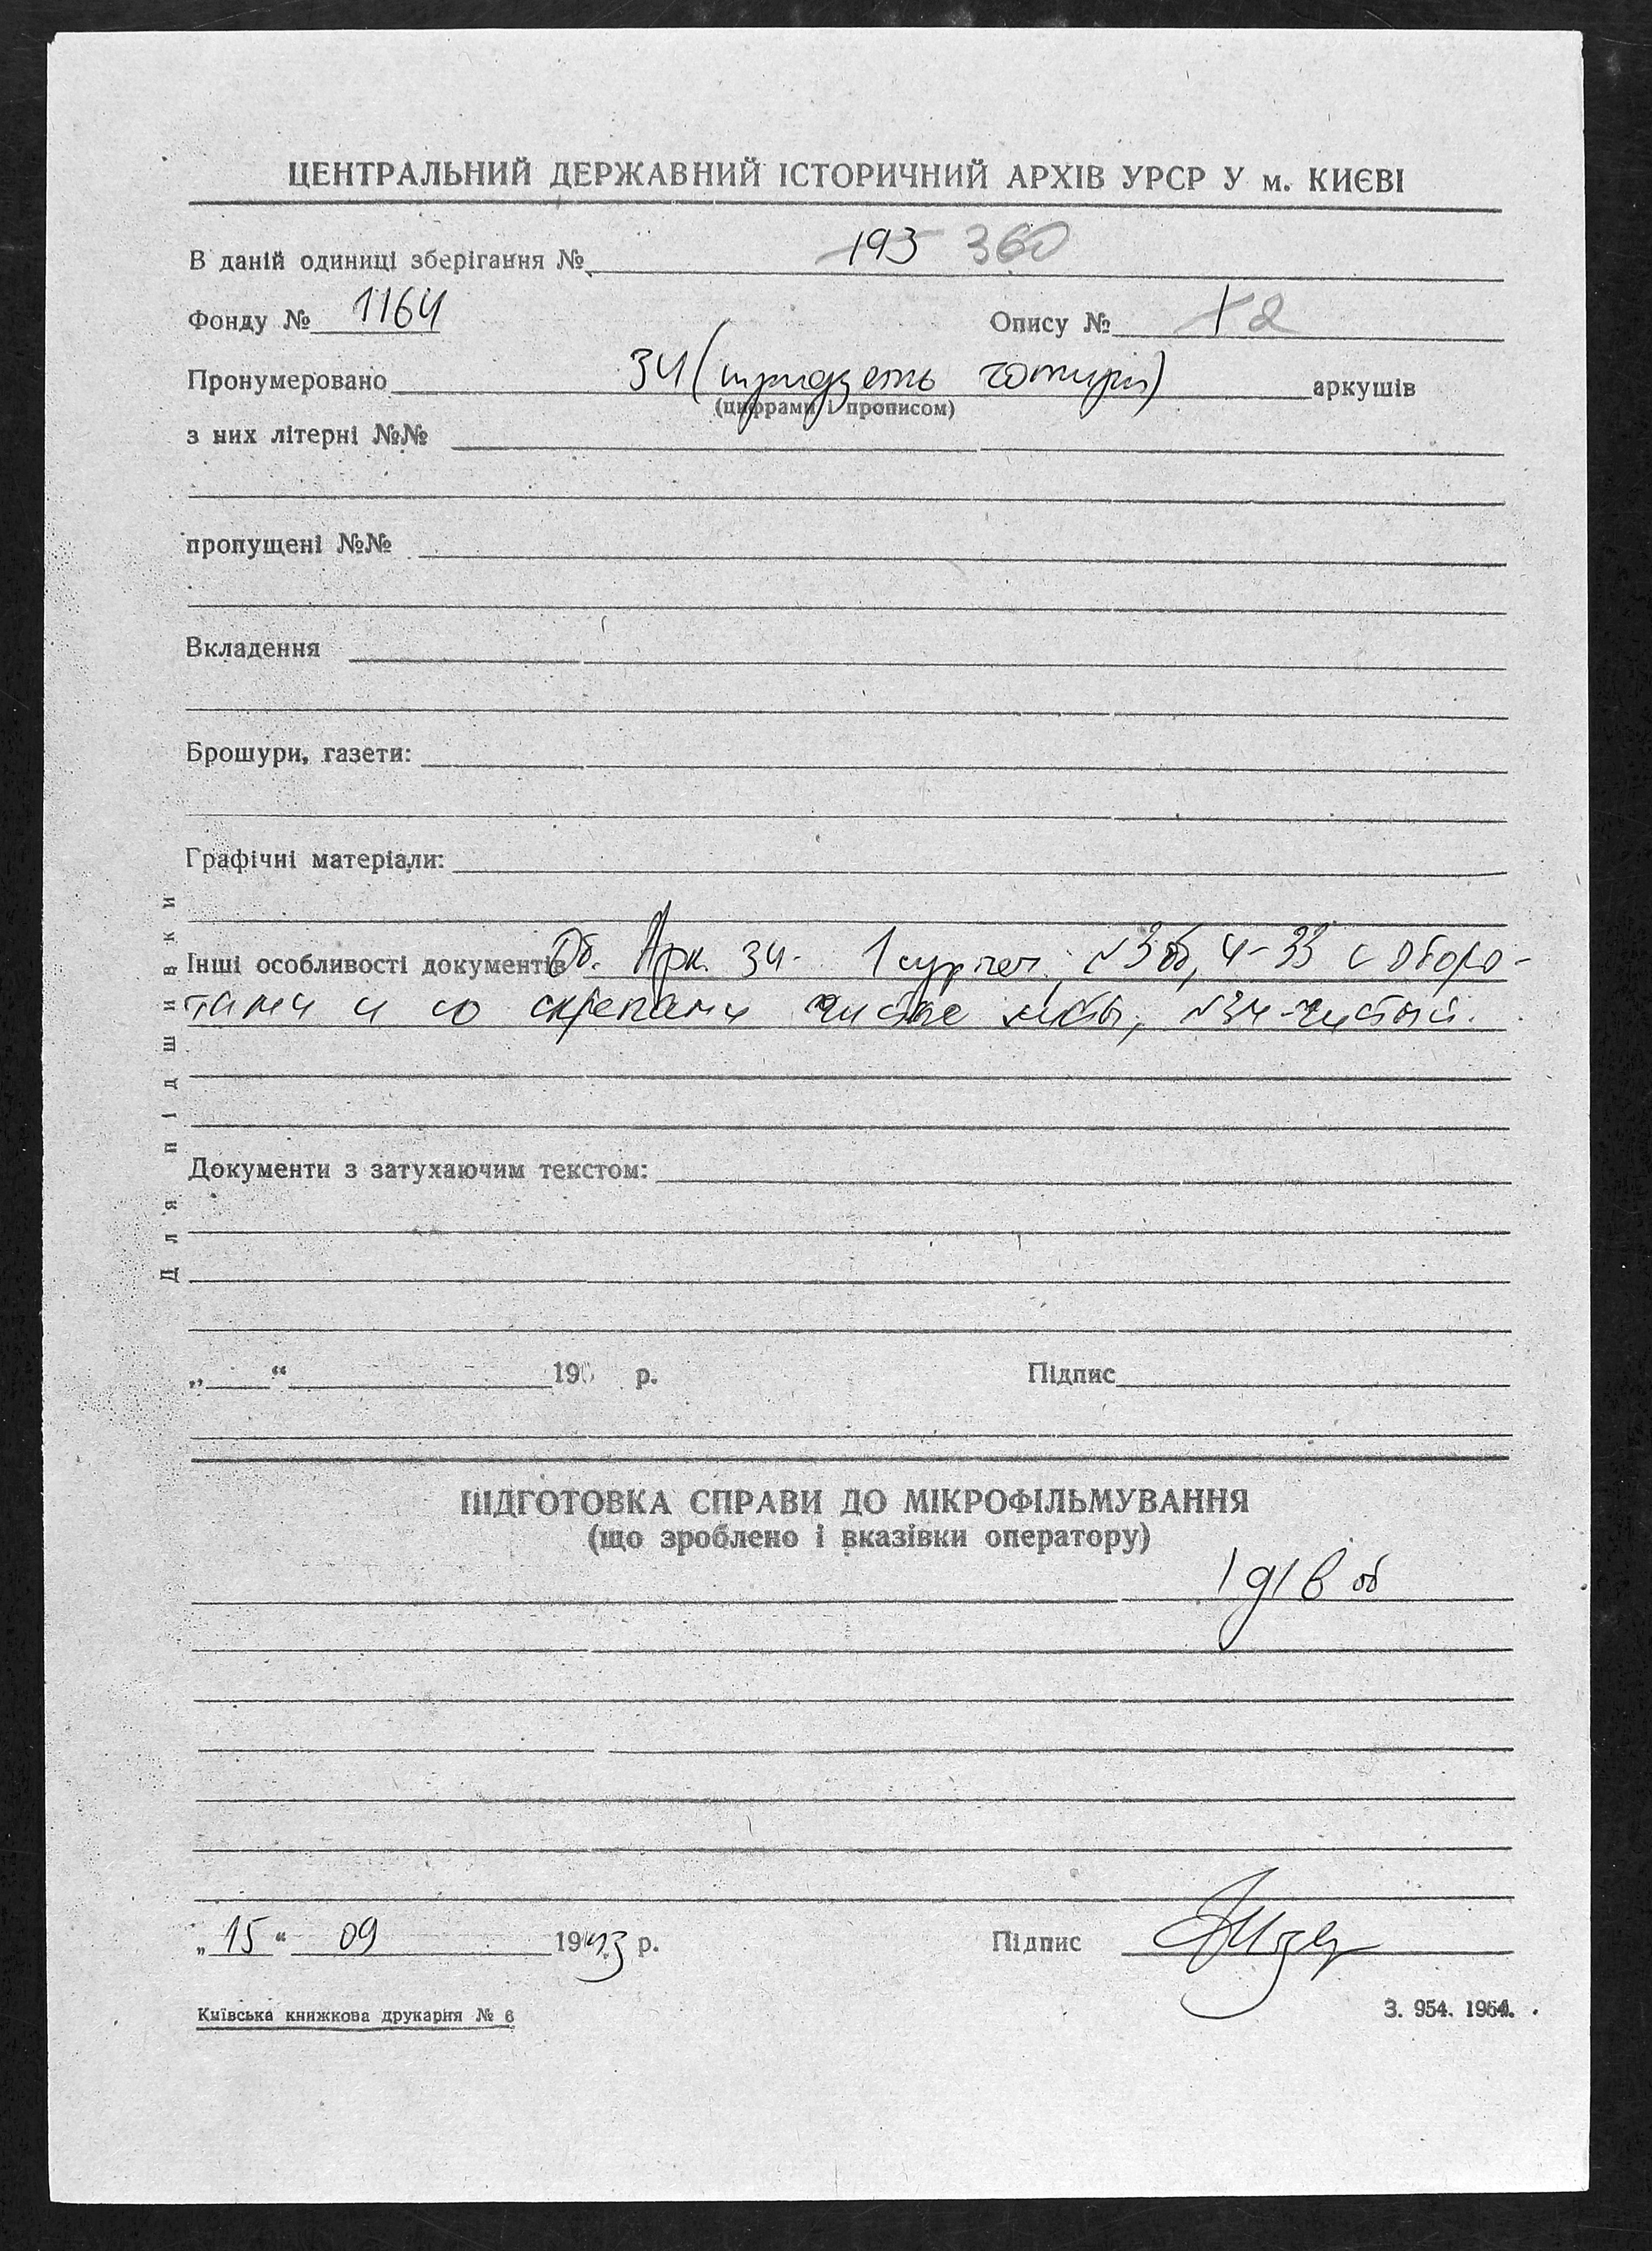 ЦЕНТРАЛЬНИЙ ДЕРЖАВНИЙ ІСТОРИЧНИЙ АРХІВ УРСР У м. КИЄВІ
В даній одиниці зберігання № 193 360
Фонду № 1164 Опису № 1 2
Пронумеровано 34 (тридцять чотири) аркушів
(цифрами і прописом)
з них літерні №№
пропущені №№
Вкладення
Брошури, газети:
Графічні матеріали:
Інші особливості документів Об. Арк. 34. 1 сургуч. №3 об, 4-33 с оборо-
тами и со скрепами чистые листы, №34-чистый.
Документи з затухаючим текстом:
„ “ 19 р. Підпис
Для підшивки
ПІДГОТОВКА СПРАВИ ДО МІКРОФІЛЬМУВАННЯ
(що зроблено і вказівки оператору)
об
„ 15 “ 09 19 р. Підпис
Київська книжкова друкарня № 6 З. 954. 1964.